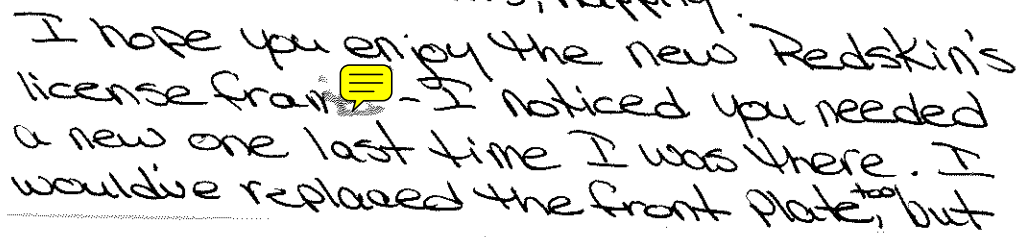 I hope you enjoy the new Redskin's
license - I noticed you needed
a new one last time I was there. I
would've replaced the front plate, too, but